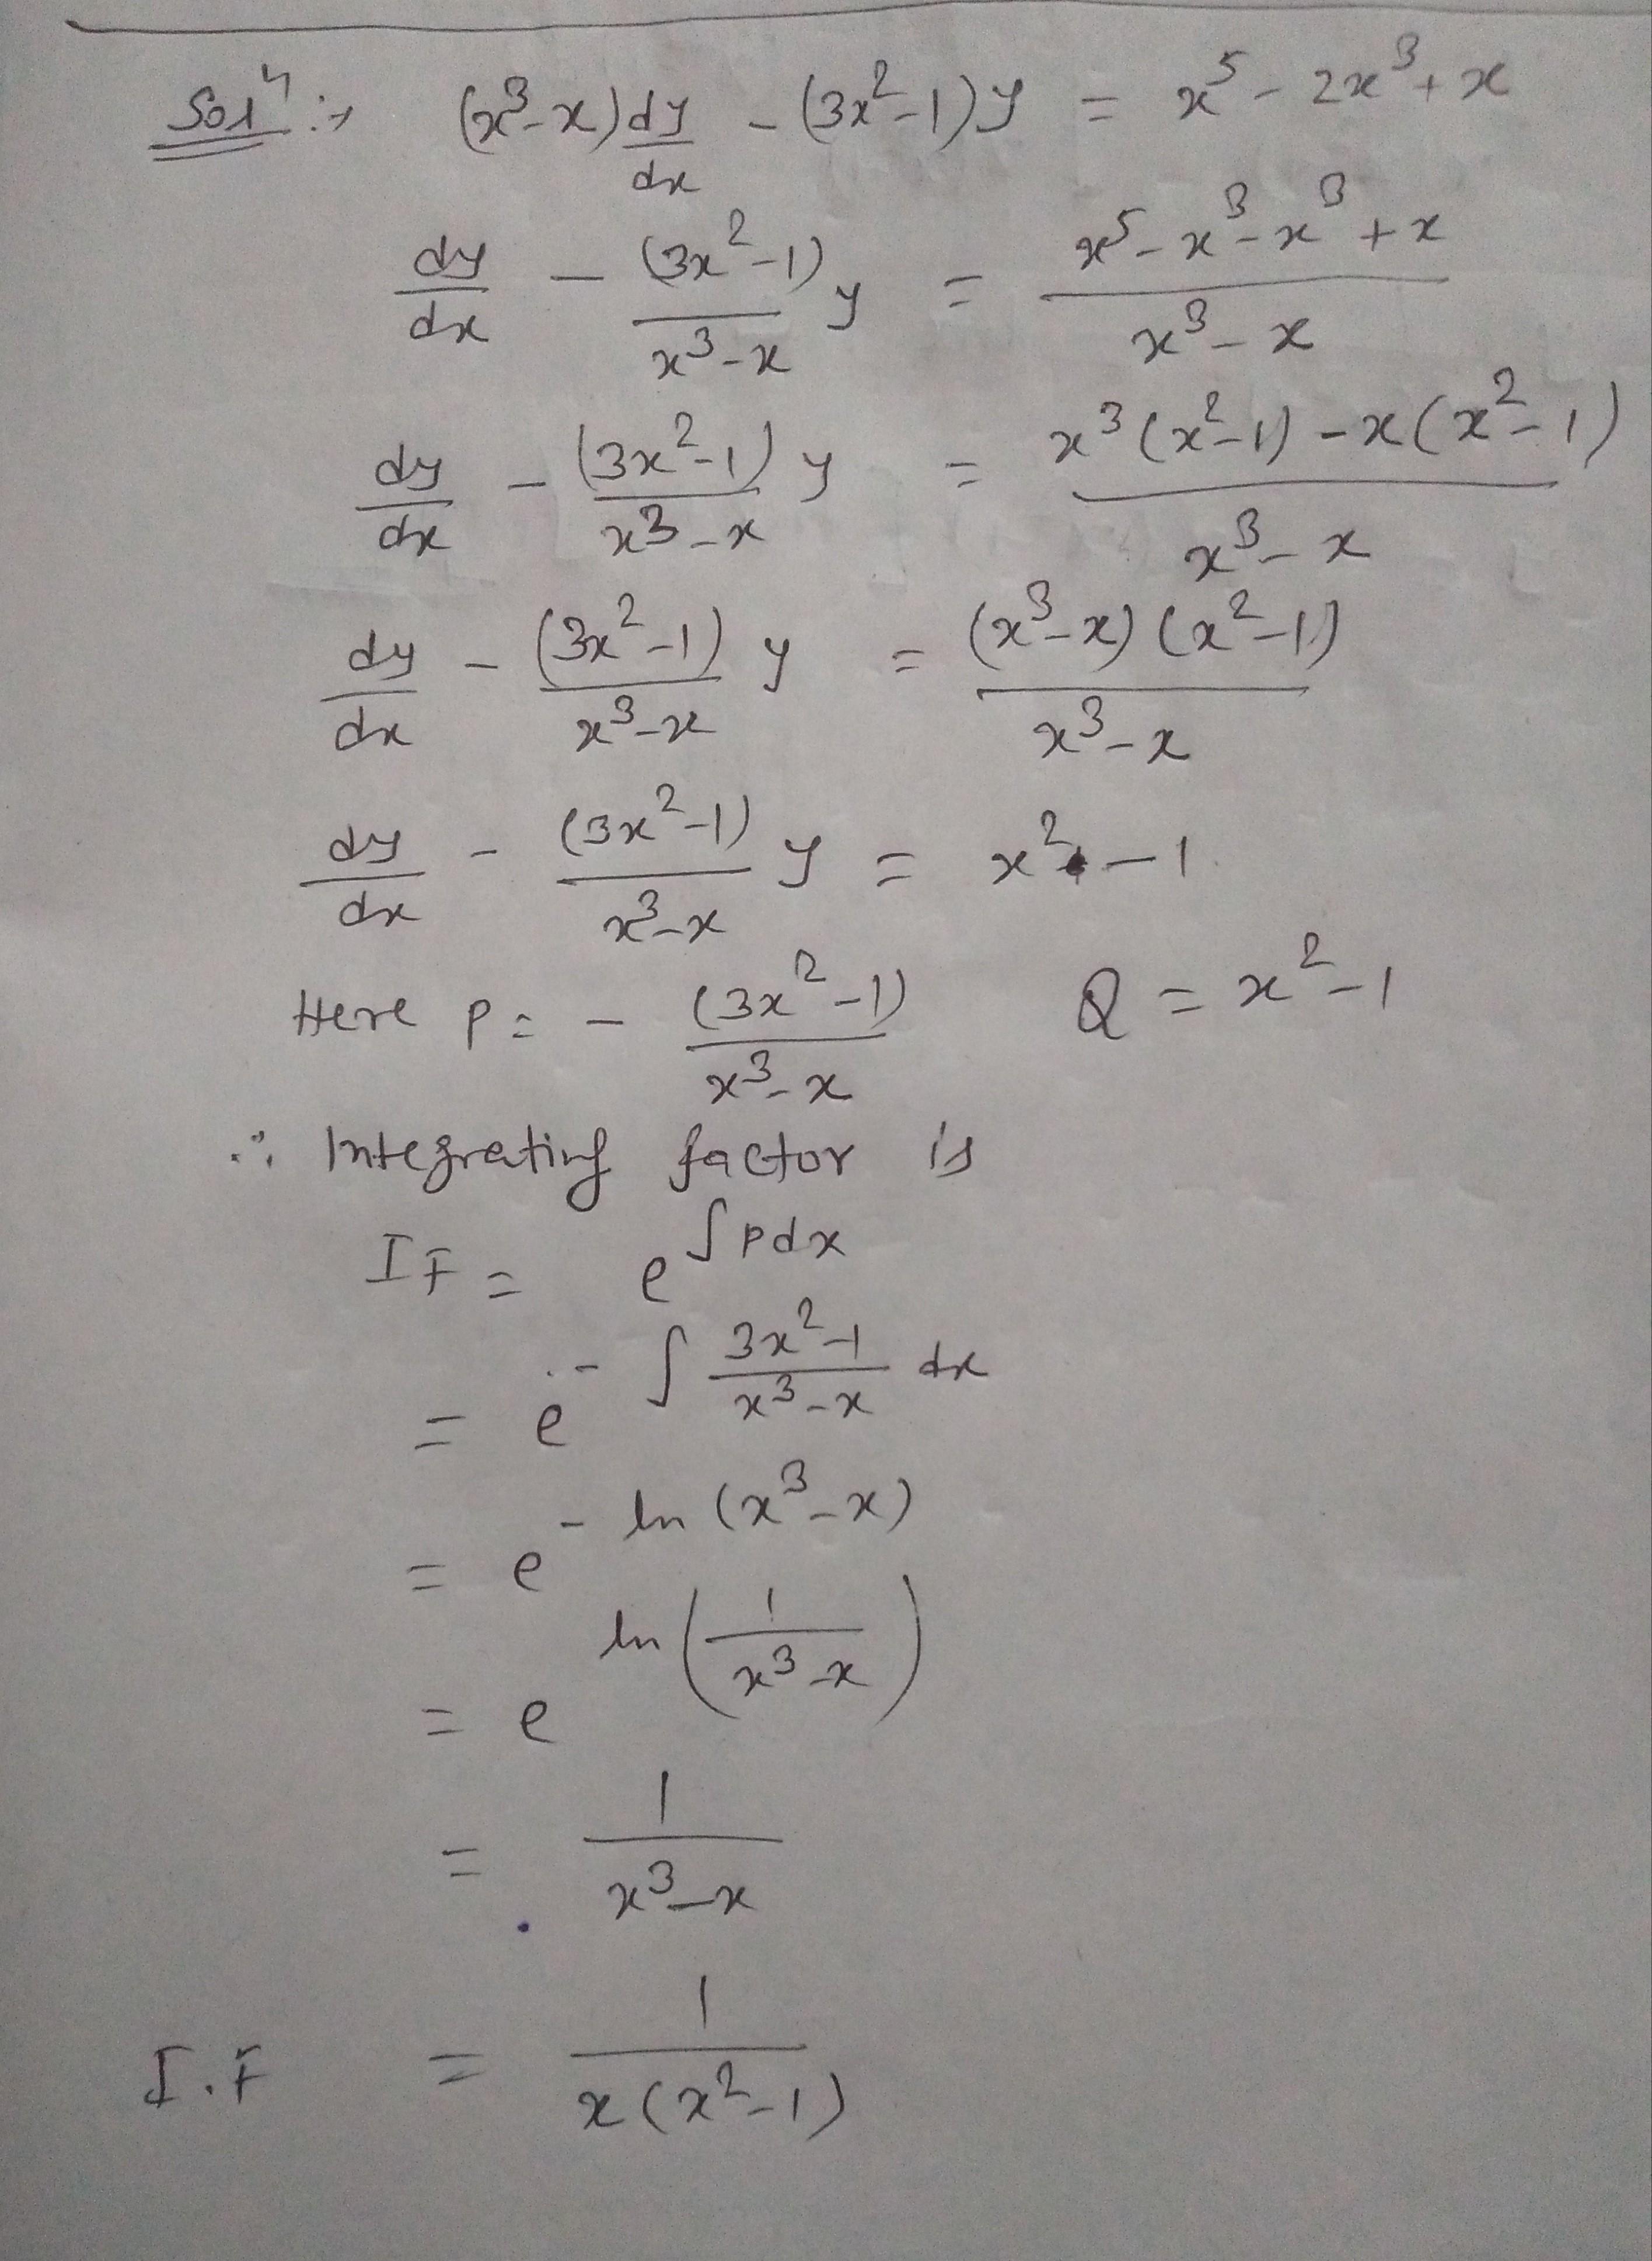 Solⁿ :→ (x³-x) dy/dx - (3x²-1)y = x⁵ - 2x³ + x
dy/dx - (3x²-1)/(x³-x) y = (x⁵-x³-x³+x)/(x³-x)
dy/dx - (3x²-1)/(x³-x) y = (x³(x²-1)-x(x²-1))/(x³-x)
dy/dx - (3x²-1)/(x³-x) y = ((x³-x)(x²-1))/(x³-x)
dy/dx - (3x²-1)/(x³-x) y = x² - 1
Here P = - (3x²-1)/(x³-x) Q = x²-1
∴ Integrating factor is
IF = e^(∫Pdx)
= e^(-∫ (3x²-1)/(x³-x) dx)
= e^(-ln(x³-x))
= e^(ln(1/(x³-x)))
= 1/(x³-x)
I.F = 1/(x(x²-1))